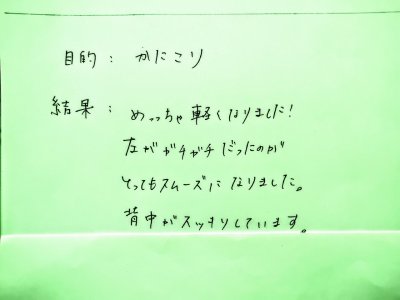 目的：かたこり
結果：めっちゃ軽くなりました！
左がガチガチだったのが
とってもスムーズになりました。
背中がスッキリしています。